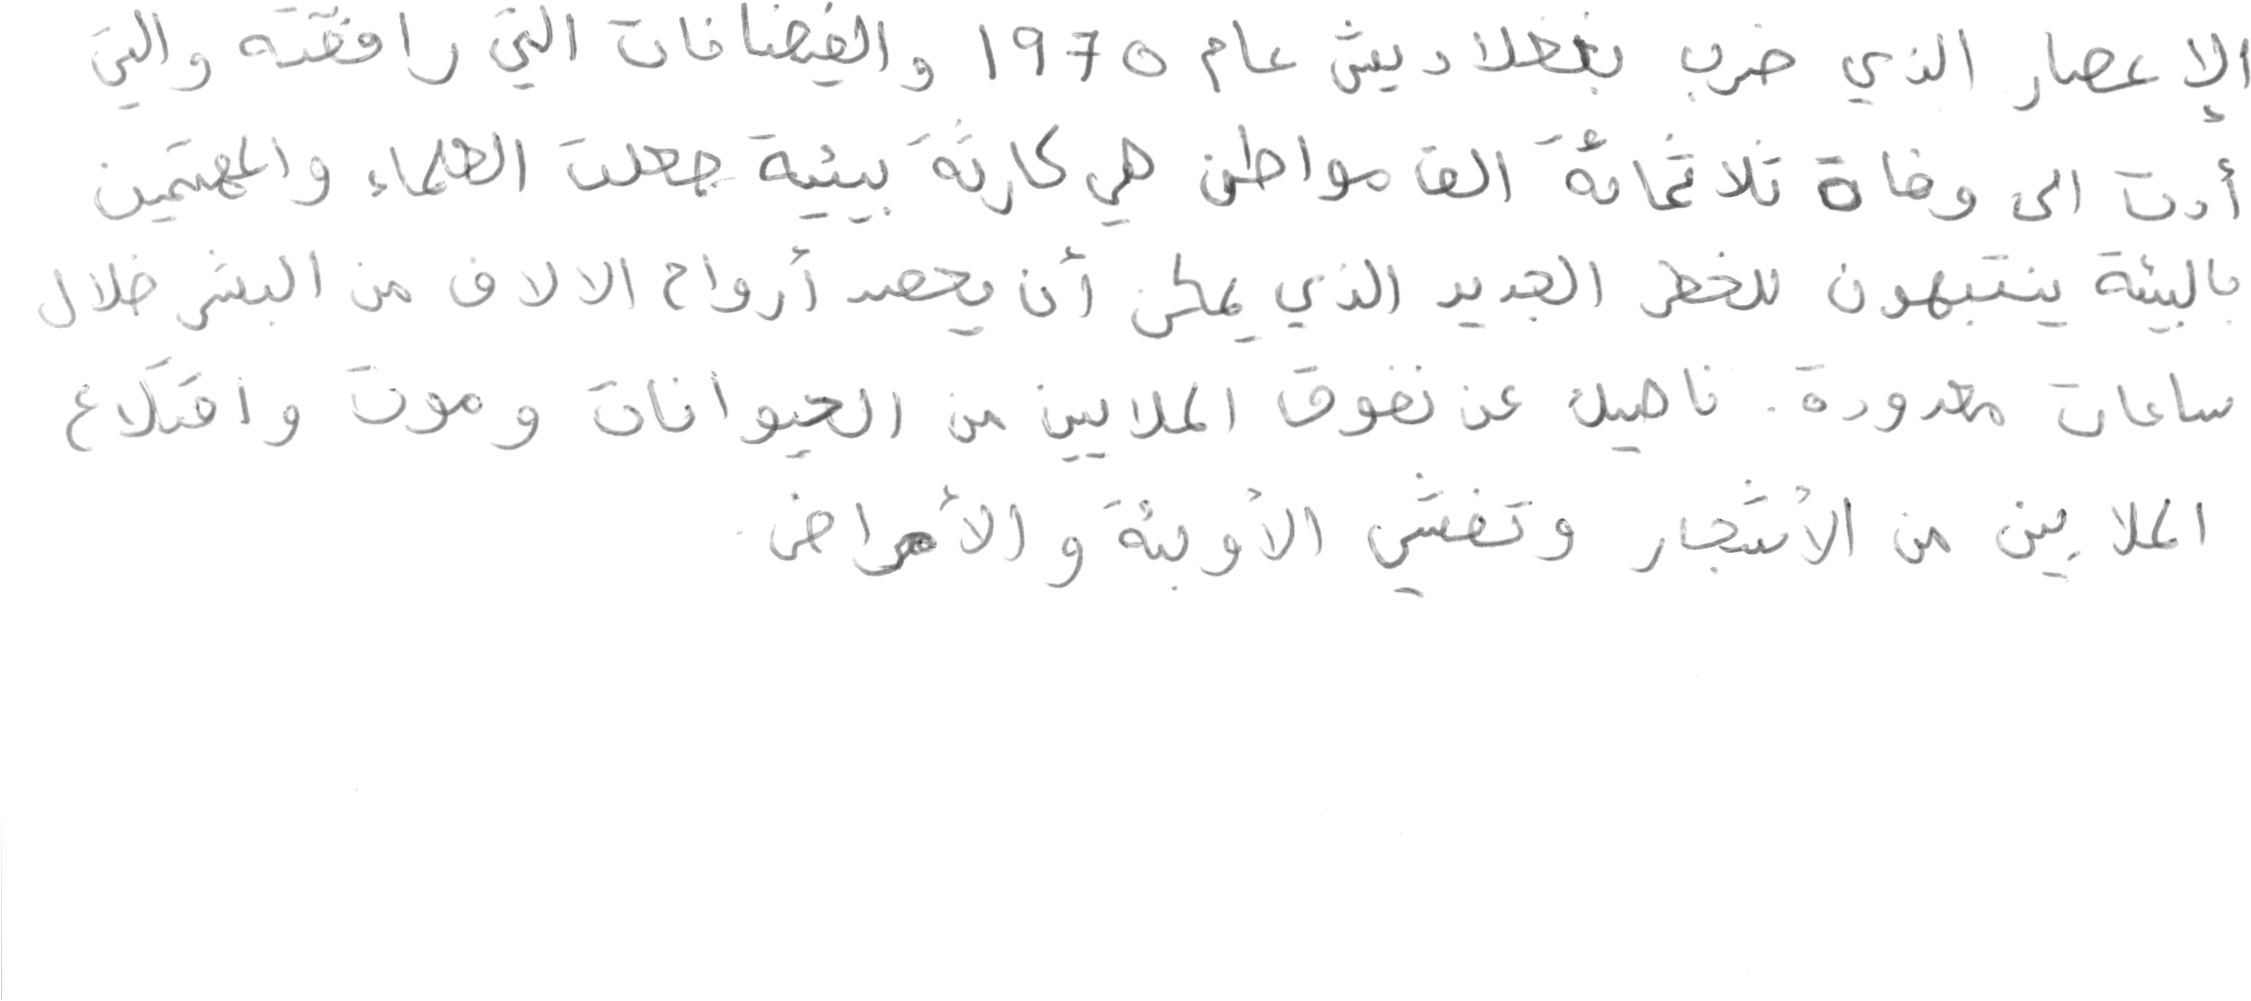 الإعصار الذي ضرب بنغلاديش عام 1970 والفيضانات التي رافقته والتي
أدت الى وفاة ثلاثمائة الف مواطن هي كارثة بيئية جعلت العلماء والمهتمين
بالبيئة ينتبهون للخطر الجديد الذي يمكن أن يحصد أرواح الالاف من البشر خلال
ساعات محدودة. ناهيك عن نفوق الملايين من الحيوانات وموت واقتلاع
الملايين من الأشجار وتفشي الأوبئة والأمراض.